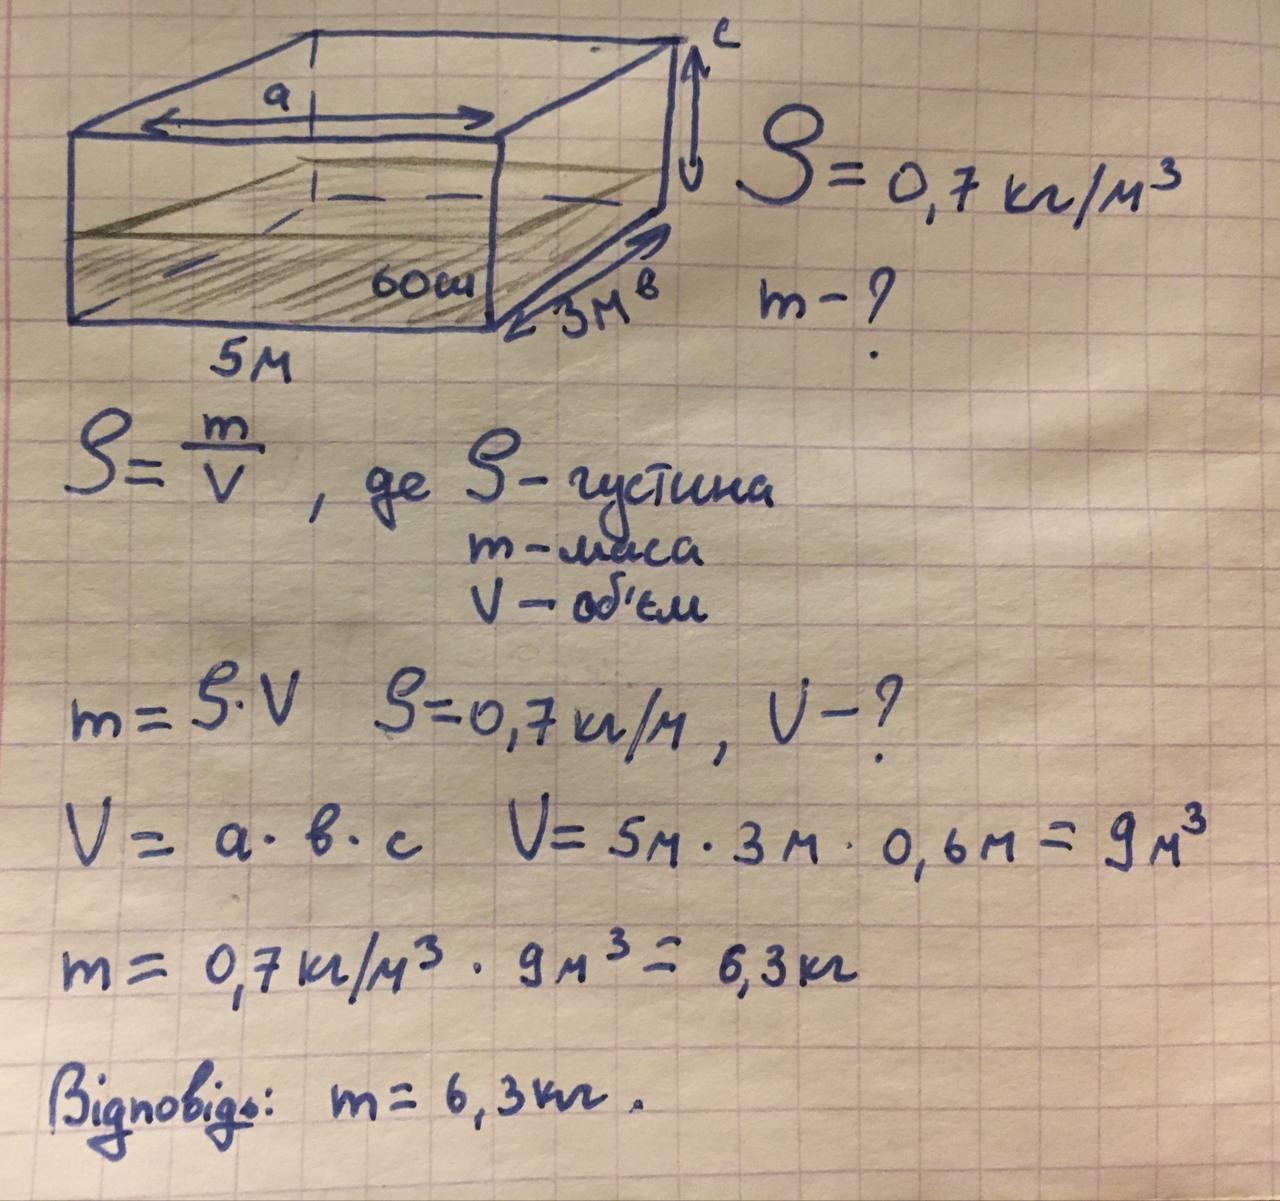 a
c
ρ = 0,7 кг/м³
60см
3м в
m - ?
5м
ρ = m/V , де ρ - густина
m - маса
V - об'єм
m = ρ·V ρ = 0,7 кг/м , V - ?
V = a · в · c V = 5м · 3м · 0,6м = 9м³
m = 0,7 кг/м³ · 9м³ = 6,3 кг
Відповідь: m = 6,3 кг .